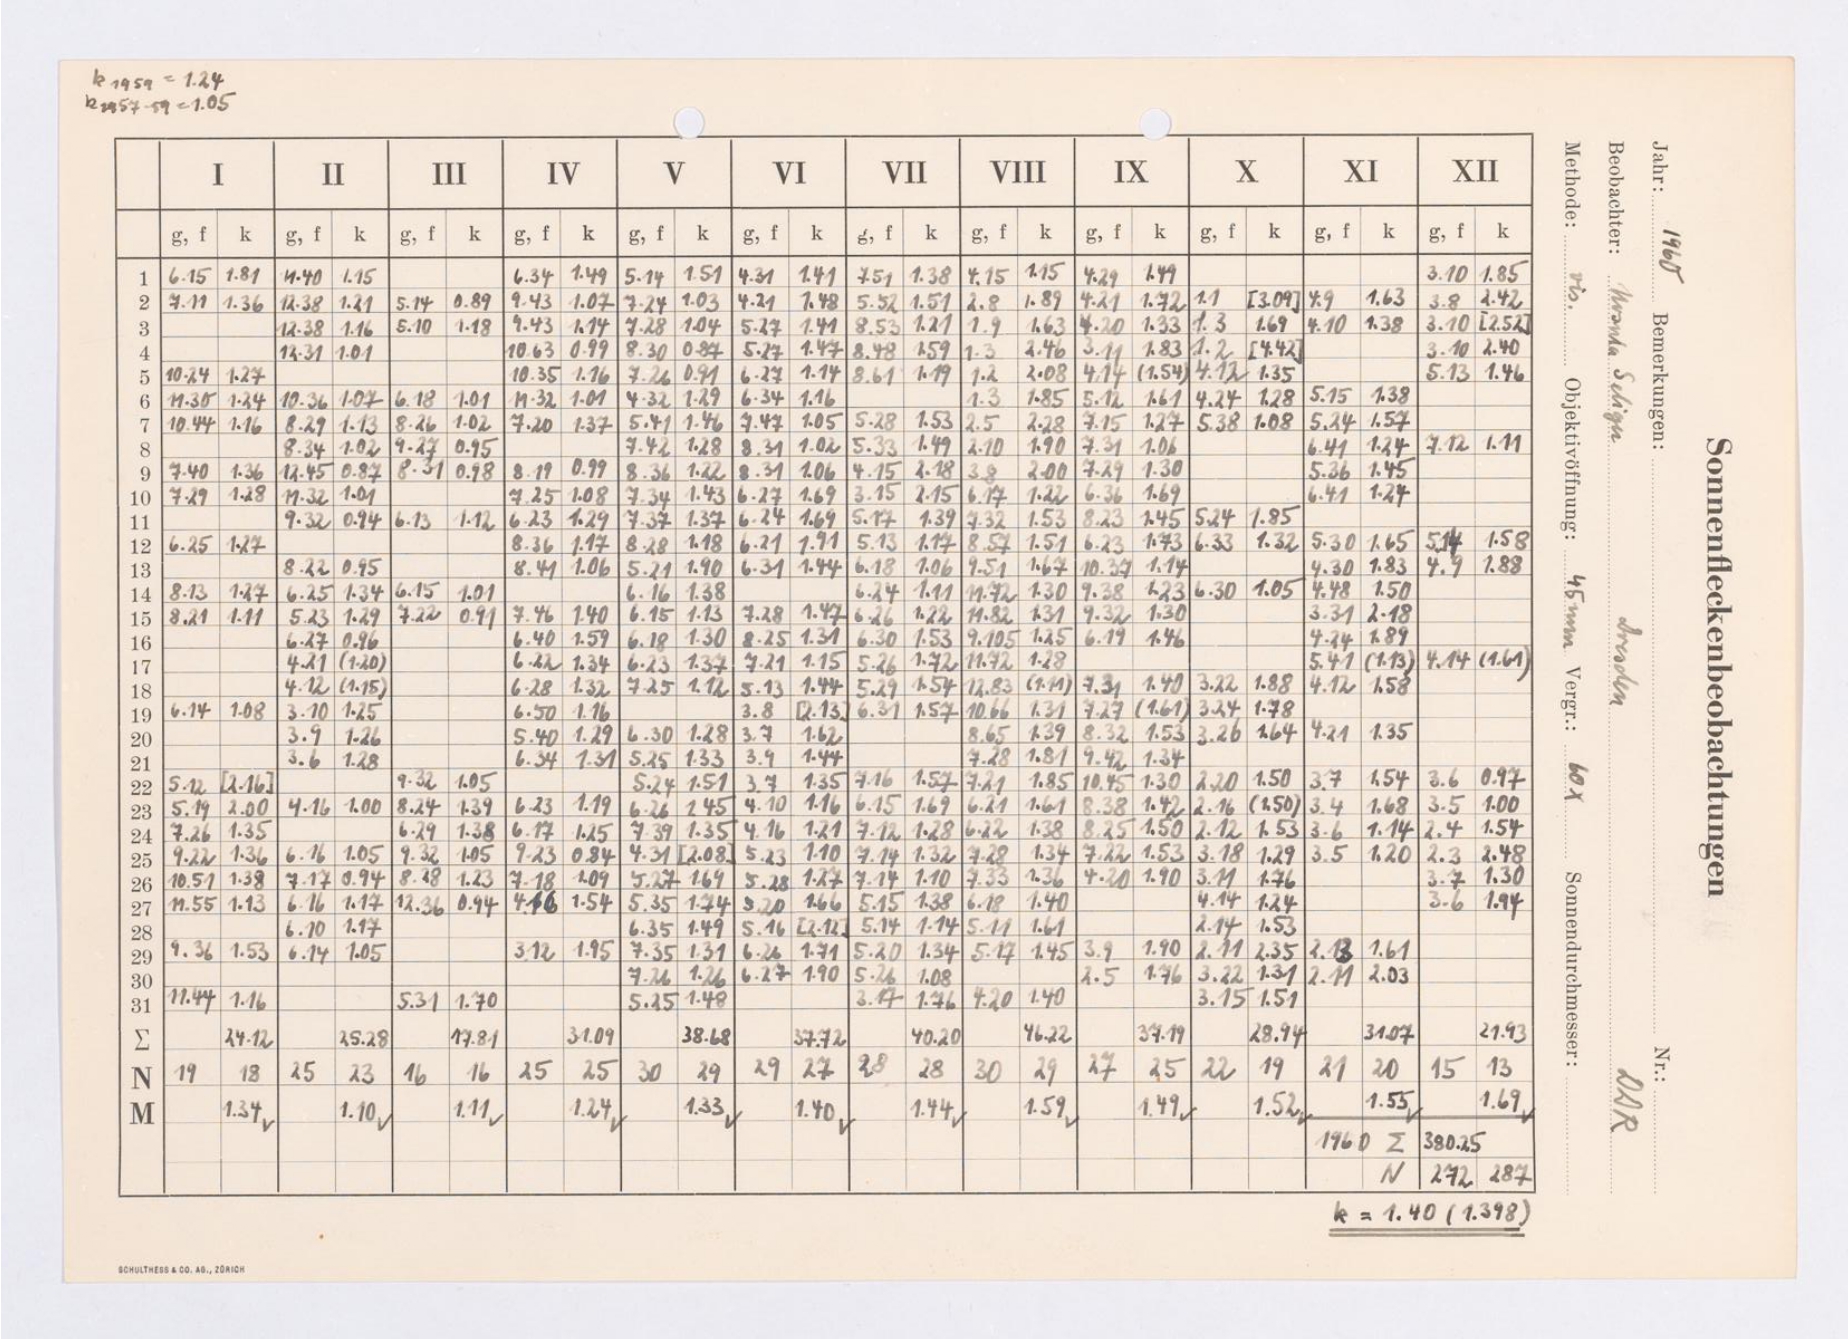 k 1959 = 1.24
k 1957-59 = 1.05
I II III IV V VI VII VIII IX X XI XII
g, f k g, f k g, f k g, f k g, f k g, f k g, f k g, f k g, f k g, f k g, f k g, f k
1 6.15 1.81 11.40 1.15 6.34 1.49 5.14 1.51 4.31 1.41 7.51 1.38 4.15 1.15 4.29 1.49 3.10 1.85
2 7.11 1.36 12.38 1.21 5.14 0.89 9.43 1.07 7.24 1.03 4.21 1.48 5.52 1.51 2.8 1.89 4.21 1.72 1.1 [3.09] 4.9 1.63 3.8 2.42
3 12.38 1.16 5.10 1.18 9.43 1.14 7.28 1.04 5.27 1.41 8.53 1.21 1.9 1.63 4.20 1.33 1.3 1.69 4.10 1.38 3.10 [2.52]
4 12.31 1.01 10.63 0.99 8.30 0.87 5.27 1.47 8.48 1.59 1.3 2.46 3.11 1.83 1.2 [4.42] 3.10 2.40
5 10.24 1.27 10.35 1.16 7.26 0.91 6.27 1.14 8.61 1.19 1.2 2.08 4.14 (1.54) 4.12 1.35 5.13 1.46
6 11.30 1.24 10.36 1.07 6.18 1.01 11.32 1.01 4.32 1.29 6.34 1.16 1.3 1.85 5.12 1.61 4.24 1.28 5.15 1.38
7 10.44 1.16 8.29 1.13 8.26 1.02 7.20 1.37 5.41 1.46 7.47 1.05 5.28 1.53 2.5 2.28 7.15 1.27 5.38 1.08 5.24 1.57
8 8.34 1.02 9.27 0.95 7.42 1.28 8.31 1.02 5.33 1.49 2.10 1.90 7.31 1.06 6.41 1.24 7.12 1.11
9 7.40 1.36 12.45 0.87 8.31 0.98 8.19 0.99 8.36 1.22 8.31 1.06 4.15 2.18 3.8 2.00 7.29 1.30 5.36 1.45
10 7.29 1.28 11.32 1.01 7.25 1.08 7.34 1.43 6.27 1.69 3.15 2.15 6.17 1.22 6.36 1.69 6.41 1.24
11 9.32 0.94 6.13 1.12 6.23 1.29 7.37 1.37 6.24 1.69 5.17 1.39 7.32 1.53 8.23 1.45 5.24 1.85
12 6.25 1.27 8.36 1.17 8.28 1.18 6.21 1.91 5.13 1.17 8.57 1.51 6.23 1.73 6.33 1.32 5.30 1.65 5.14 1.58
13 8.22 0.95 8.41 1.06 5.21 1.90 6.31 1.44 6.18 1.06 9.51 1.67 10.37 1.14 4.30 1.83 4.9 1.88
14 8.13 1.27 6.25 1.34 6.15 1.01 6.16 1.38 6.24 1.11 11.72 1.30 9.38 1.23 6.30 1.05 4.48 1.50
15 8.21 1.11 5.23 1.29 7.22 0.91 7.46 1.40 6.15 1.13 7.28 1.47 6.26 1.22 11.82 1.31 9.32 1.30 3.31 2.18
16 6.27 0.96 6.40 1.59 6.18 1.30 8.25 1.31 6.30 1.53 9.105 1.25 6.19 1.46 4.24 1.89
17 4.21 (1.20) 6.22 1.34 6.23 1.37 7.21 1.15 5.26 1.72 11.72 1.28 5.41 (1.13) 4.14 (1.61)
18 4.12 (1.15) 6.28 1.32 7.25 1.12 5.13 1.44 5.29 1.54 12.83 (1.11) 7.31 1.40 3.22 1.88 4.12 1.58
19 6.14 1.08 3.10 1.25 6.50 1.16 3.8 [2.13] 6.31 1.57 10.66 1.31 7.27 (1.61) 3.24 1.78
20 3.9 1.26 5.40 1.29 6.30 1.28 3.7 1.62 8.65 1.39 8.32 1.53 3.26 1.64 4.21 1.35
21 3.6 1.28 6.34 1.31 5.25 1.33 3.9 1.44 7.28 1.81 9.42 1.34
22 5.12 [2.16] 9.32 1.05 5.24 1.51 3.7 1.35 7.16 1.57 7.21 1.85 10.45 1.30 2.20 1.50 3.7 1.54 3.6 0.97
23 5.19 2.00 4.16 1.00 8.24 1.39 6.23 1.19 6.26 1.45 4.10 1.16 6.15 1.69 6.21 1.61 8.38 1.42 2.16 (1.50) 3.4 1.68 3.5 1.00
24 7.26 1.35 6.29 1.38 6.17 1.25 7.39 1.35 4.16 1.21 7.12 1.28 6.22 1.38 8.25 1.50 2.12 1.53 3.6 1.14 2.4 1.54
25 9.22 1.36 6.16 1.05 9.32 1.05 9.23 0.84 4.31 [2.08] 5.23 1.10 7.14 1.32 7.28 1.34 7.22 1.53 3.18 1.29 3.5 1.20 2.3 2.48
26 10.51 1.38 7.17 0.94 8.28 1.23 7.18 1.09 5.27 1.69 5.28 1.27 7.14 1.10 7.33 1.36 4.20 1.90 3.11 1.76 3.7 1.30
27 11.55 1.13 6.16 1.17 12.36 0.94 4.16 1.54 5.35 1.74 3.20 1.66 5.15 1.38 6.18 1.40 4.14 1.24 3.6 1.94
28 6.10 1.17 6.35 1.49 5.16 [2.12] 5.14 1.14 5.11 1.61 2.14 1.53
29 9.36 1.53 6.14 1.05 3.12 1.95 7.35 1.31 6.26 1.71 5.20 1.34 5.17 1.45 3.9 1.90 2.11 2.35 2.13 1.61
30 7.26 1.26 6.27 1.90 5.26 1.08 2.5 1.76 3.22 1.31 2.11 2.03
31 11.44 1.16 5.31 1.70 5.25 1.48 3.17 1.76 4.20 1.40 3.15 1.51
Σ 24.12 25.28 17.81 31.09 38.68 37.72 40.20 46.22 37.19 28.94 31.07 21.93
N 19 18 25 23 16 16 25 25 30 29 29 27 28 28 30 29 27 25 22 19 21 20 15 13
M 1.34 1.10 1.11 1.24 1.33 1.40 1.44 1.59 1.49 1.52 1.55 1.69
1960 Σ 380.25
N 272 287
k = 1.40 (1.398)
SCHULTHESS & CO. AG., ZÜRICH
Sonnenfleckenbeobachtungen
Jahr: 1960 Bemerkungen: Nr.:
Beobachter: Seliger Dresden DDR
Methode: vis. Objektivöffnung: 45mm Vergr.: 60x Sonnendurchmesser: